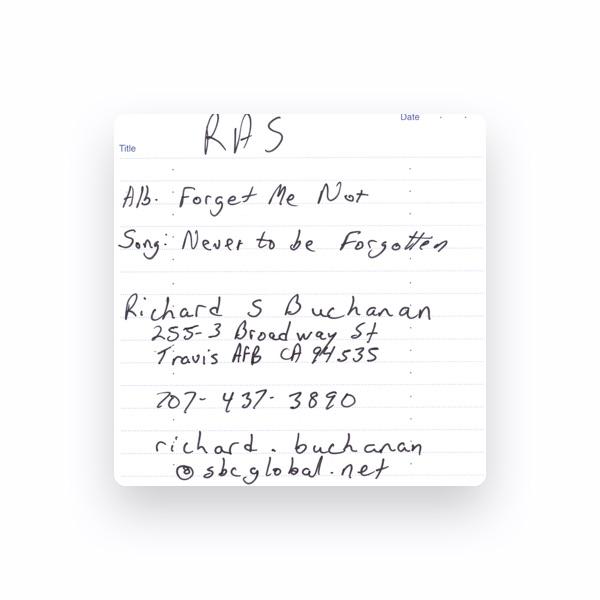 Date
RAS
Title
Alb. Forget Me Not
Song: Never to be Forgotten
Richard S Buchanan
255-3 Broadway St
Travis AFB CA 94535
707-437-3890
richard.buchanan
@sbcglobal.net